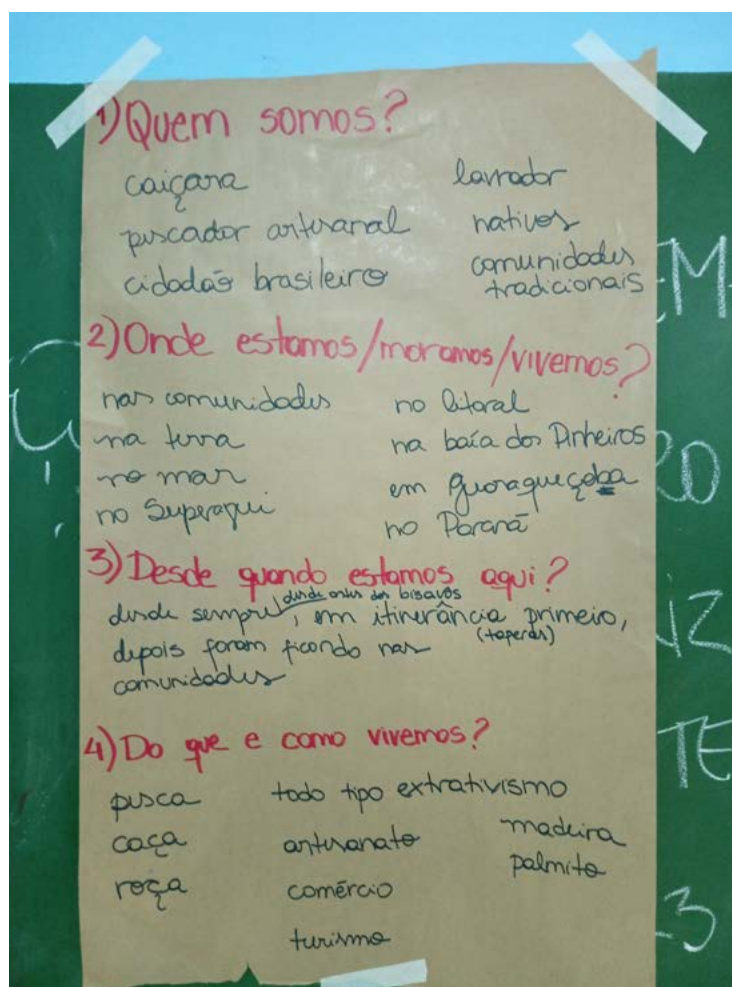 1) Quem somos?
caiçara
pescador artesanal
cidadão brasileiro
lavrador
nativos
comunidades
tradicionais
2) Onde estamos/moramos/vivemos?
nas comunidades
na terra
no mar
no Superagui
no litoral
na baía dos Pinheiros
em Guaraqueçaba
no Paraná
3) Desde quando estamos aqui?
desde antes dos bisavós
desde sempre, em itinerância primeiro,
(taperas)
depois foram ficando nas
comunidades
4) Do que e como vivemos?
pesca
caça
roça
todo tipo extrativismo
artesanato
comércio
turismo
madeira
palmito
EM
RO
IZ
TE
3